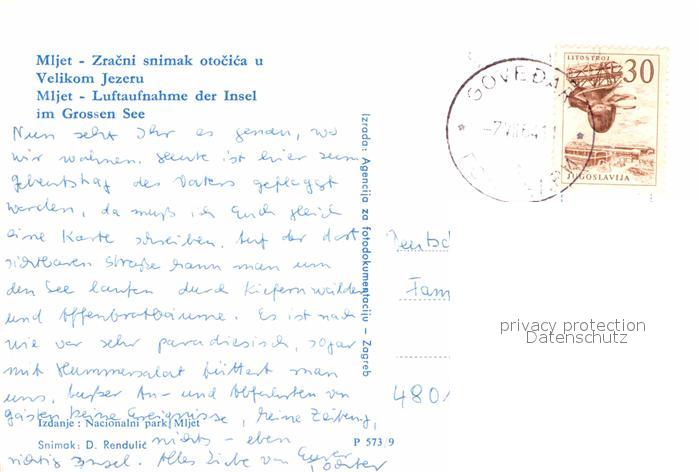 Mljet - Zračni snimak otočića u
Velikom Jezeru
Mljet - Luftaufnahme der Insel
im Grossen See
Nun seht Ihr es genau, wo
wir wohnen. Heute ist hier zum
Geburtstag des Vaters geflaggt
worden, da muß ich Euch gleich
eine Karte schreiben. Auf der dort
sichtbaren Straße kann man um
den See laufen durch Kiefernwälder
und Affenbrotbäume. Es ist nach
wie vor sehr paradiesisch, sogar
mit Hummersalat füttert man
uns. Außer An- und Abfahrten von
Gästen keine Ereignisse, keine Zeitung,
Izdanje: Nacionalni park Mljet
nichts - eben
Snimak: D. Rendulić
richtig Insel. Alles Liebe von Eurer
Tochter
P 573/9
Izrada: Agencija za fotodokumentaciju - Zagreb
GOVEĐARI
-7.VII.64
LITOSTROJ
30
JUGOSLAVIJA
Deutsc
Fam
480
privacy protection
Datenschutz